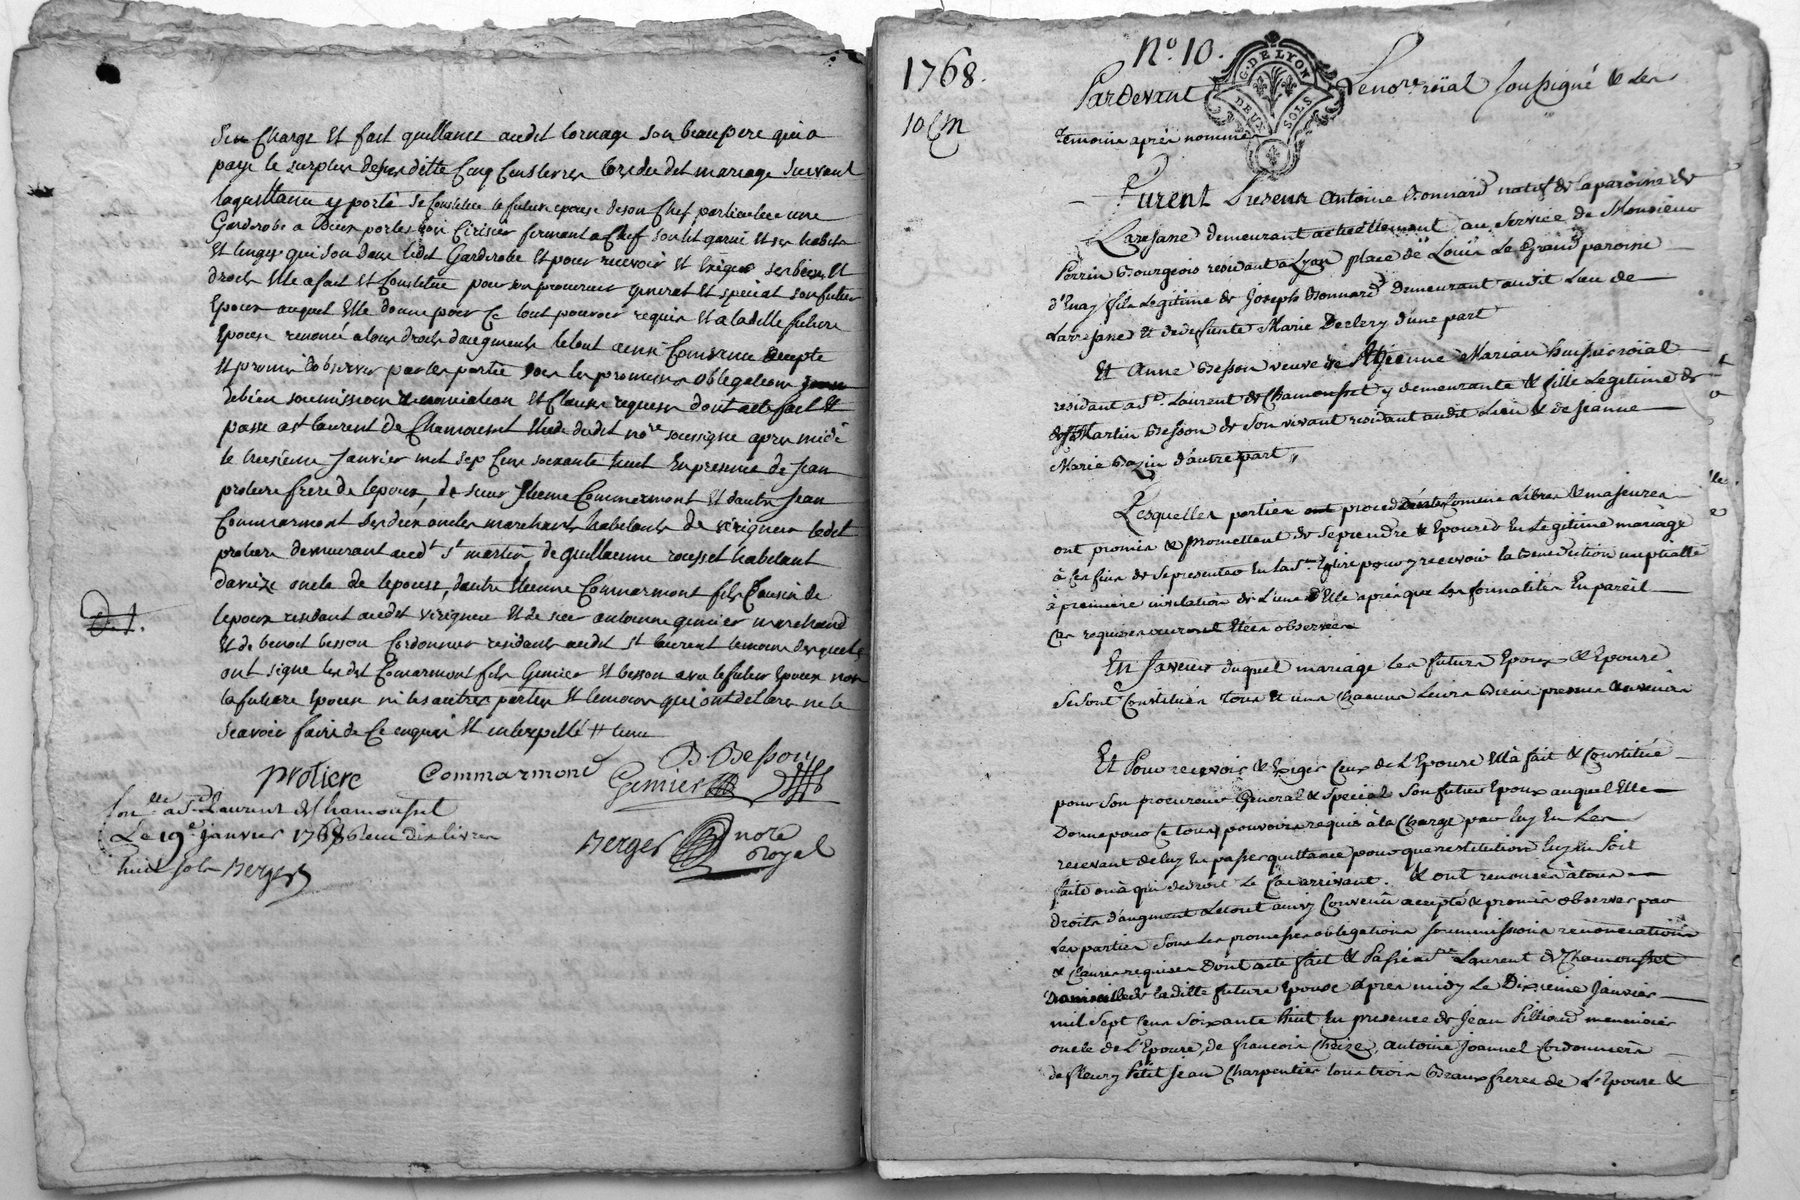 d'en Charge Et fait quittance audit Cornage son beaupere qui a
paye le surplus desdittes Cinq Cens livres lors dudit mariage suivant
la quittance y porté se Constitue la future epouse de son Chef particuliere une
Garderobe a deux portes bois Cirisier fermant a Clef son lit garni Et ses habits
Et linges qui son dans ledit Garderobe Et pour recevoir Et Exiger ses biens Et
droits Elle a fait et Constitué pour son procureur general Et special son futur
Epoux auquel Elle donne pour Ce tout pouvoir requis Et a laditte future
Epouse renoncé a tous droits daugments le tout ainsi Convenu accepte
Et promis observer par les parties sous les promesses obligations
de biens soumissions renonciation Et Clauses requises dont acte fait Et
passe a st laurent de Chamousset Etude dudit nore soussigne apres midi
le treizieme Janvier mil sept Cens soixante huit En presence de Jean
protiere frere de lepoux, de sieur Etienne Commarmont Et dautre Jean
Commarmont ses deux oncles marchants habitants de virigneu ledit
protiere demeurant audt st martin de guillaume rousset habitant
daveize oncle de lepouse, dautre Etienne Commarmont fils Cousin de
lepoux residant audit virigneu Et de sieur antoine gimier marchand
Et de benoit besson Cordonnier residants audit st laurent temoins lesquels
ont signe ledit Comarmont fils Gimier Et besson avec le futur Epoux non
la future Epouse ni les autres parties Et temoins qui ont declares ne le
scavoir faire de Ce enquis Et interpellé
B. Besson
protiere Commarmond Gimier
Con.lle a St Laurent de Chamousset
Le 19e janvier 1768 reçu dix livres
huit sols Berger
Berger nore
Royal
1768.
No. 10.
G. DE LYON
DEUX SOLS
10 Cm
Pardevant Le nore roïal soussigné & les
temoins après nommés
Furent Presens Antoine Bonnard natif de la paroisse de
Larajasse demeurant actuellement au service de Monsieur
Perrin Bourgeois residant a Lyon place de Loüis Le Grand paroisse
d'Enay fils Legitime de Joseph Bonnard demeurant audit Lieu de
Larajasse Et de defunte Marie Declery d'une part
Et Anne Besson veuve de Etienne Marian huissier roïal
residant a St. Laurent de Chamousset y demeurante & fille Legitime de
Martin Besson de Son vivant residant audit Lieu & de Jeanne
Marie Bazin d'autre part,
Lesquelles parties procedantes Comme Libres & majeures
ont promis & promettent de Se prendre & Epouser En Legitime mariage
à Ces fins de Se presenter En la Ste. Eglise pour y recevoir la Benediction nuptialle
à premiere invitation de L'une d'Elle après que les formalités En pareil
Cas requises auront Etées observées
En faveur duquel mariage les futurs Epoux & Epouse
Se Sont Constitués tous Et uns Chacuns Leurs Biens presens & avenirs
Et Pour recevoir & Exiger Ceux de L'Epouse Ell'à fait & Constitué
pour Son procureur General & Special Son futur Epoux auquel Elle
Donne pour Ce tous pouvoirs requis à la Charge par luy En Les
recevant de luy En passer quittance pour que restitution luy En Soit
faite ou à qui de droit Le Cas arrivant. & ont renoncés à tous
droits d'augment Le tout ainsy Convenû accepté & promis observer par
Les parties Sous Les promesses obligations Soummissions renonciations
& Clauses requises Dont acte fait & Passé a St. Laurent de Chamousset
Domicille de laditte future Epouse après midy Le Dixieme Janvier
mil Sept Cens Soixante huit En presence de Jean Pilliard menuisier
oncle de L'Epouse, de francois Cheize, Antoine Joannel Cordonniers
de fleury Petit Jean Charpentier tous trois Beaux freres de L'Epouse &